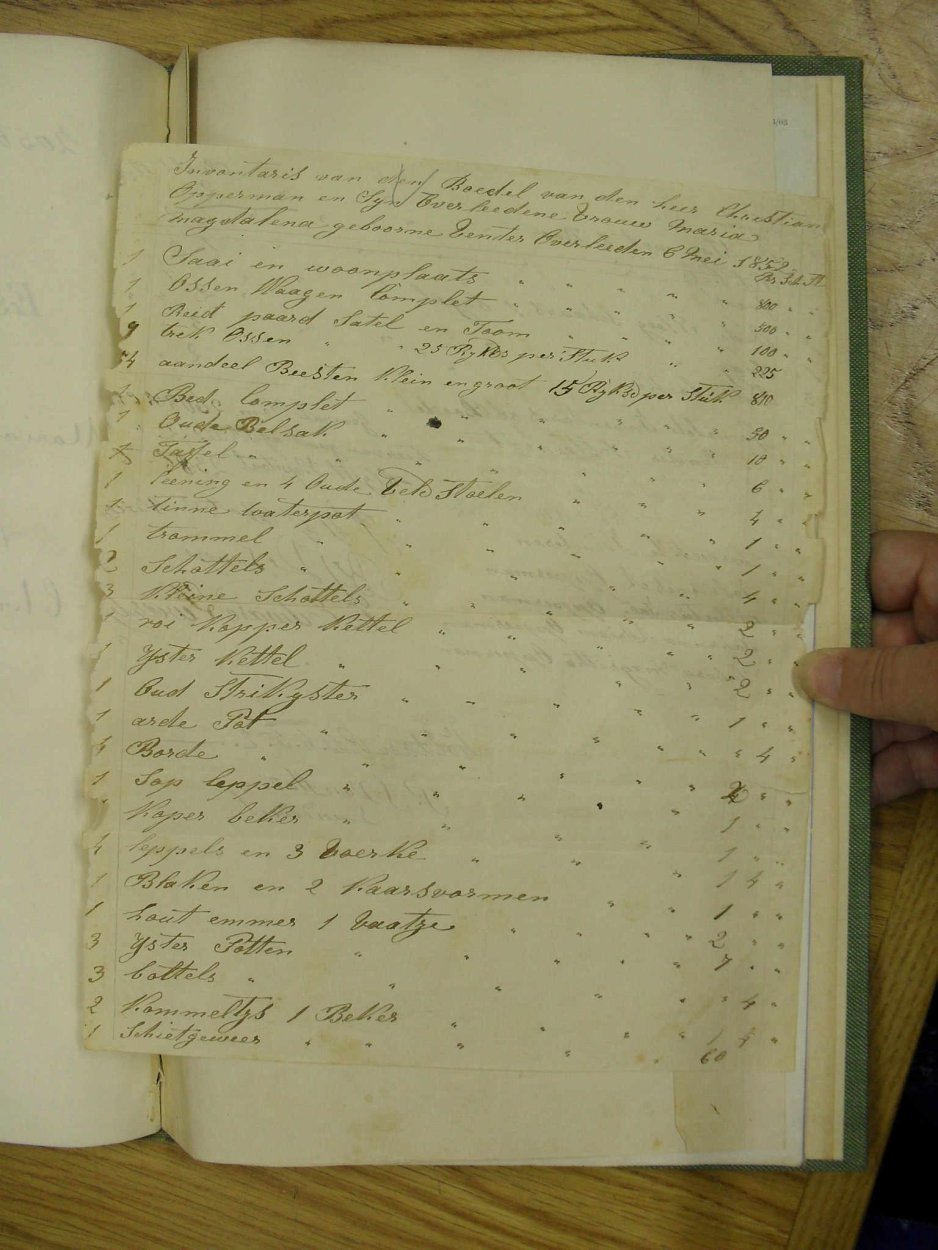 Inventaris van den Boedel van den heer Christian
Opperman en Syn Overleedene Vrouw Maria
Magdalena geboorne Venter Overleeden 6 Mei 1852
Rs Sk St
1 Saai en woonplaats " " " " 800 " "
1 Ossen Waagen Complet " " " " 300 " "
1 Reid paard Satel en Toom " " " 100 " "
9 trek Ossen " " 25 Rykds per Stuk 225
54 aandeel Beesten klein en groot 15 Rykds per Stuk 810
1 Bed Complet " " " " " 30 " "
1 Oude Belsak " " " " " 10 " "
Taffel " " " " " 6 " "
1 leening en 4 Oude Veld Stoelen " " " 4 " "
1 tinne waterpot " " " " " 1 " "
1 trommel " " " " " 1 " "
2 Schottels " " " " " 4 " "
3 Kleine Schottels " " " " " 2 " "
1 roi Kopper Kettel " " " " 2 " "
1 Yster Kettel " " " " " 2 " "
1 Oud Strikyster " " " " " 1 " "
1 arde Pot " " " " " " 4 "
4 Borde " " " " "
1 Sop leppel " " " " " "
" Koper beker " " " " " 1 " "
4 leppels en 3 Voerke " " " " 1 " "
1 Blaken en 2 Kaarsvormen " " " 1 4 "
1 hout emmer 1 Vaatje " " " 1 " "
3 Yster Potten " " " " " 2 " "
3 bottels " " " " " " 4 "
2 Kommeltys 1 Beker " " " " 1 4 "
1 Schietgeweer " " " " 60